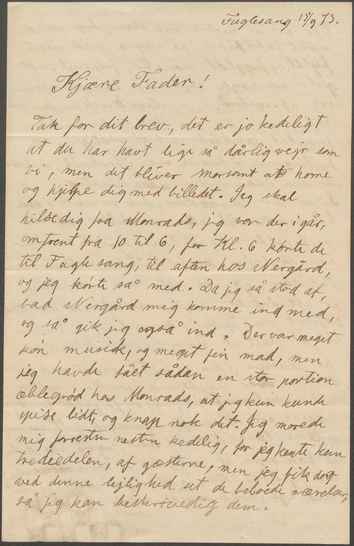 Fuglesang 18/9 73.
Kjære Fader!
Tak for dit brev, det er jo kedeligt
at du har havt lige så dårlig vejr som
vi, men det bliver morsomt at home
og hjælpe dig med billedet. Jeg skal
hilse dig fra Monrads, jeg var der igår,
omtrent fra 10 til 6, for Kl. 6 kørte de
til Fuglesang, til aften hos Nergård,
og jeg kørte så med. Da jeg så stod af,
bad Nergård mig komme ind med,
og så gik jeg også ind. Der var meget
køn musik, og meget fin mad, men
jeg havde fået sådan en stor portion
æblegrød hos Monrads, at jeg kun kunde
spise lidt, og knap nok det. Jeg morede
mig forresten nesten kedelig, for jeg kente kun
trediedelen, af gæsterne, men jeg fik dog
ved denne lejlighed set de beboede værelser,
så jeg kan dem.